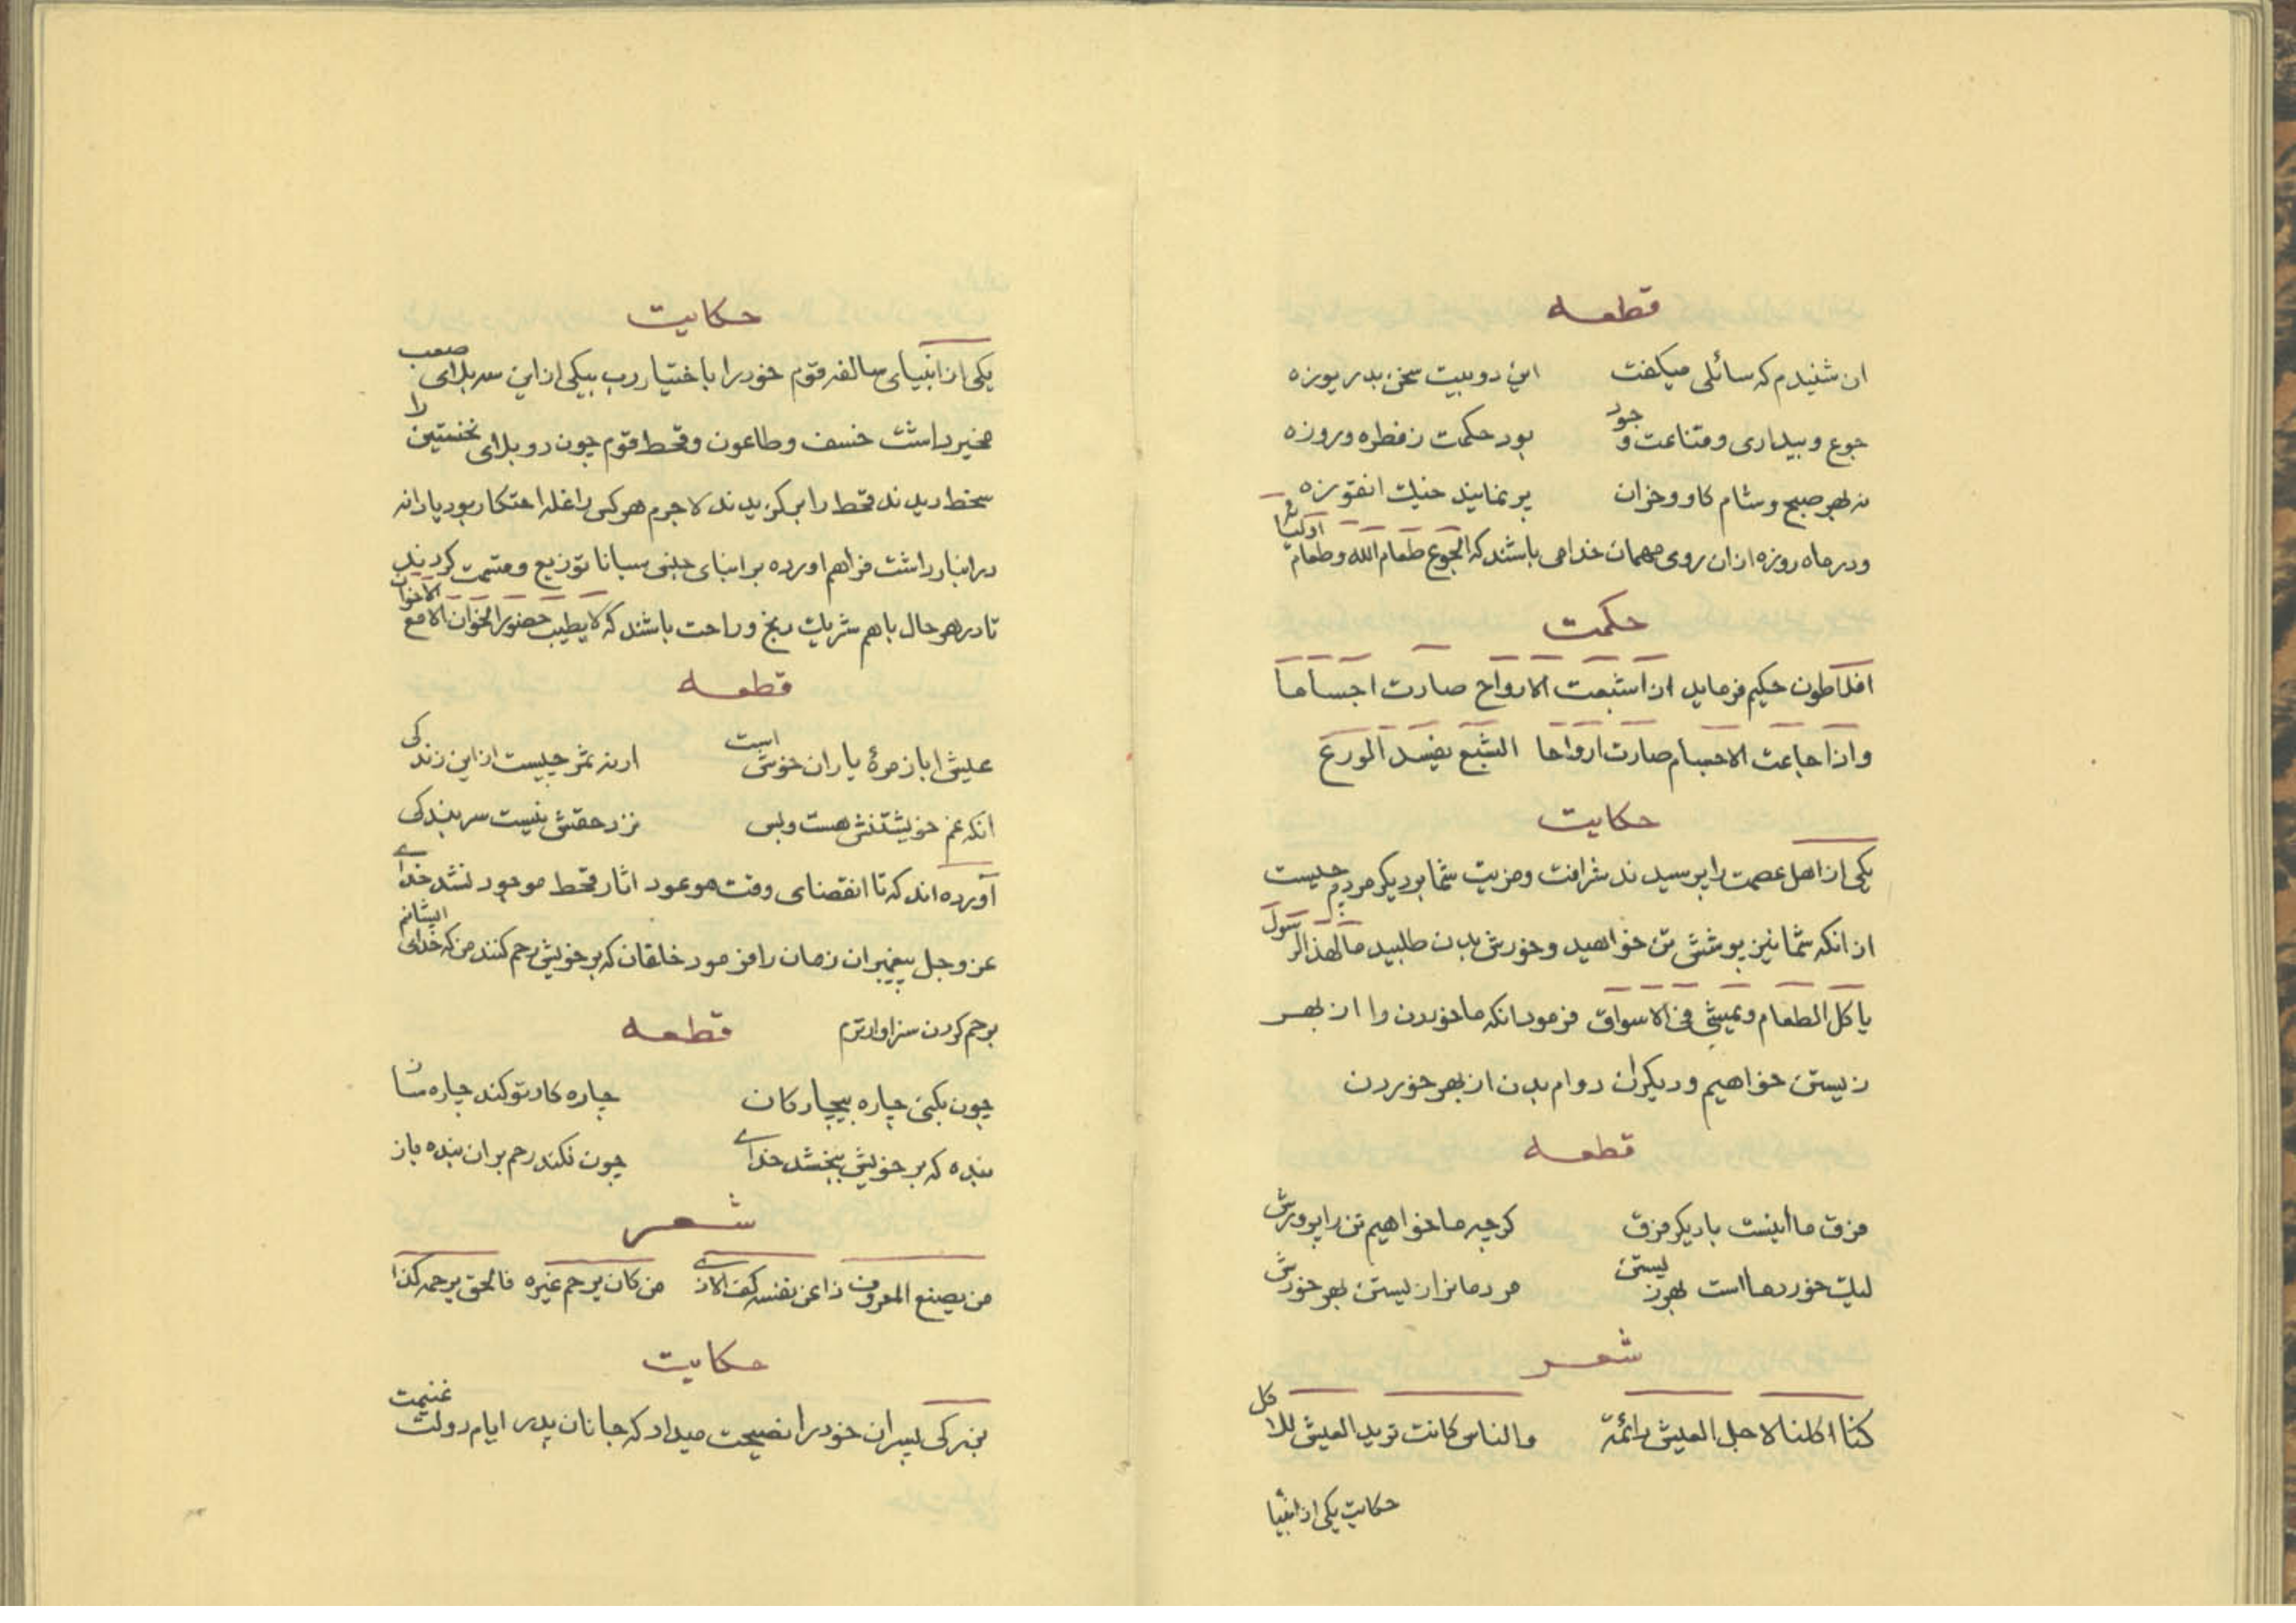 قطعه
ان شنیدم که سائلی میکفت این دوبیت سخن بدریوزه
جوع و بیداری و قناعت و جود بود حکمت زفطره و روزه
نه بهر صبح و شام کاو وخران
ودر ماه روزه ازان روی مهمان خدا می باشند که الجوع طعام الله وطعام اولیائه
حکمت
افلاطون حکیم فرماید ان اشبعت الارواح صارت اجساما
واذا جاعت الاجسام صارت ارواحا الشبع یفسد الورع
حکایت
یکی از اهل عصمت را پرسیدند شرافت ومزیت شما بر دیکر مردم چیست
از انکه شما نیز پوشش تن خواهید و خورش بدن طلبید ما لهذا الرسول
یاکل الطعام و یمشی فی الاسواق فرمود انکه ما خوردن را از بهر
زیستن خواهیم و دیکران دوام بدن از بهر خوردن
قطعه
فرق ما اینست با دیکر فرق کرچه ما خواهیم تن را پرورش
لیک خورد ما است بهر زیستن مردمانرا زیستن بهر خورش
شعر
کنا اکلنا لاجل العیش دائمة والناس کانت ترید العیش للاکل
حکایت یکی از انبیا
حکایت
یکی از انبیای سالفه قوم خود را با ختیار رب بیکی از این سه بلای صعب
مخیر داشت خسف و طاعون و قحط قوم چون دو بلای نخستین را
سخط دیدند قحط را بر کزیدند لاجرم هر کس را غله احتکار بود یا دانه
در انبار داشت فراهم اورده بر ابنای جنس سیانا توزیع و قسمت کردند
تا در هر حال با هم شریک رنج و راحت باشند که لا یطیب حضور الخوان الا مع الاخوان
قطعه
عیش ابا زمرهٔ یاران خوش است ارنه ثمر چیست از این زندکی
انکه غم خویشتنش هست وبس نزد حقش نیست سر بندکی
آورده اند که تا انقضای وقت موعود اثار قحط موجود نشد خدای
عز وجل پیغمبران زمان را فرمود خلقان که بر خویش رحم کنند من که خدای ایشانم
برحم کردن سزاوارترم قطعه
چون بکنی چاره بیچارکان چاره کار تو کند چاره ساز
بنده که بر خویش ببخشد خدای چون نکند رحم بران بنده باز
شعر
من یصنع المعروف ذا عن نفسه کف الاذی من کان یرحم غیره فالحق یرحمه کذا
حکایت
بزرکی پسران خود را نصیحت میداد که جانان پدر ایام دولت غنیمت